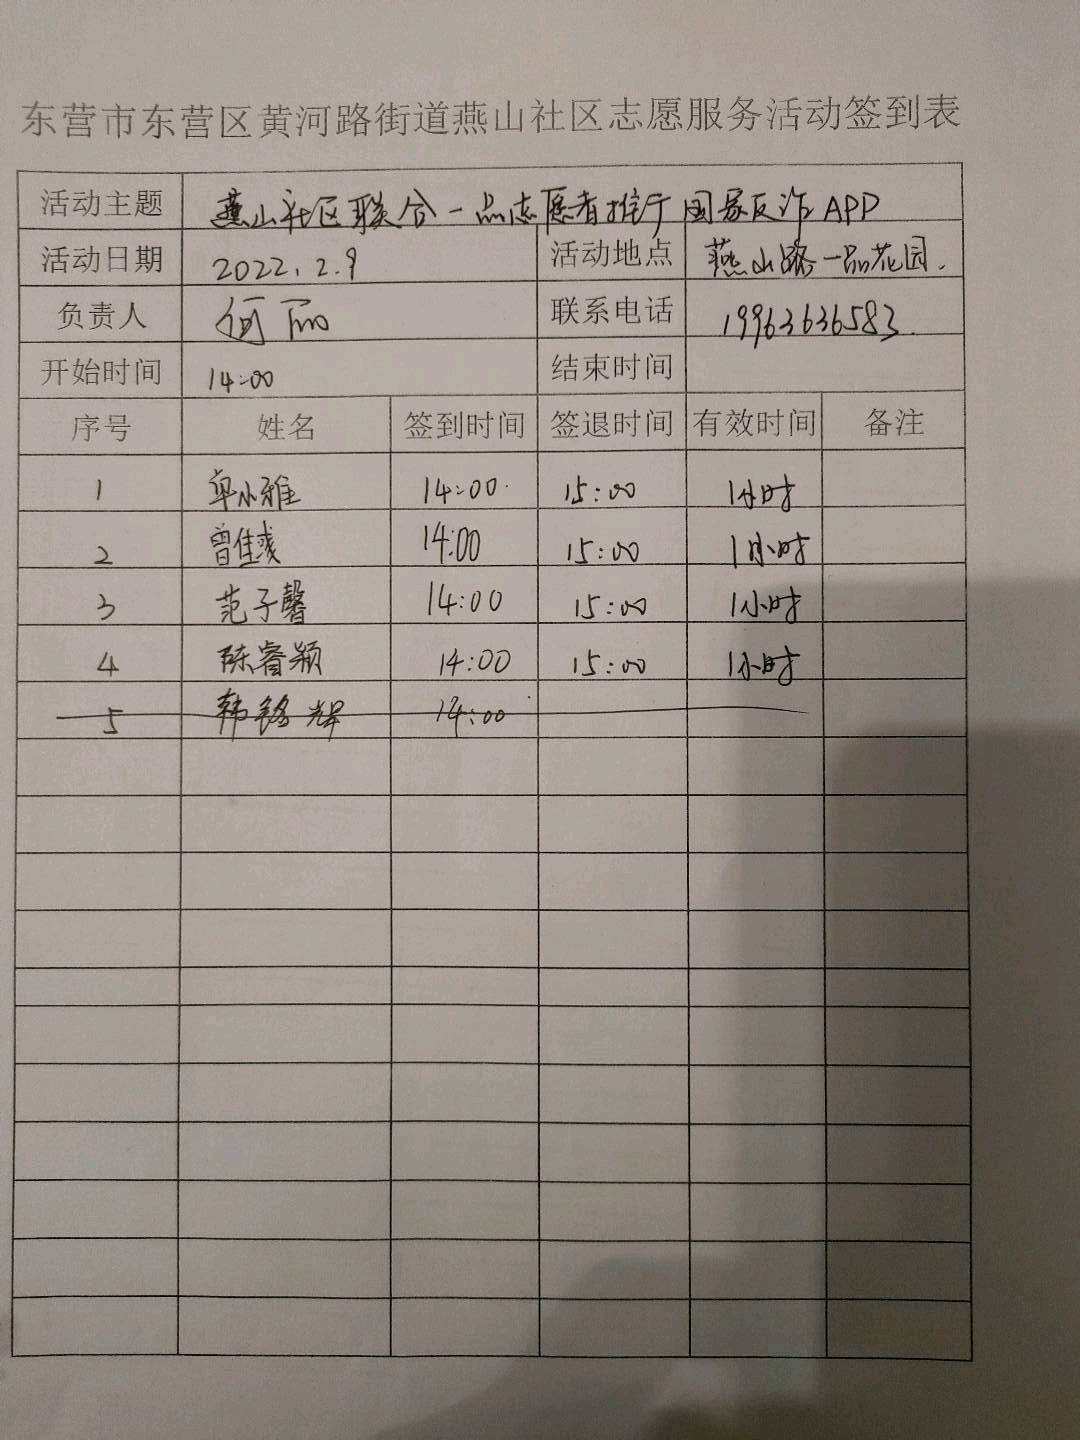 东营市东营区黄河路街道燕山社区志愿服务活动签到表
活动主题 燕山社区联合一品志愿者推广国家反诈APP
活动日期 2022.2.9 活动地点 燕山路一品花园.
负责人 何丽 联系电话 19963636583.
开始时间 14:00 结束时间
序号 姓名 签到时间 签退时间 有效时间 备注
1 单小雅 14:00. 15:00 1小时
2 曾佳爽 14:00 15:00 1小时
3 范子馨 14:00 15:00 1小时
4 陈睿颖 14:00 15:00 1小时
5 韩铭辉 14:00